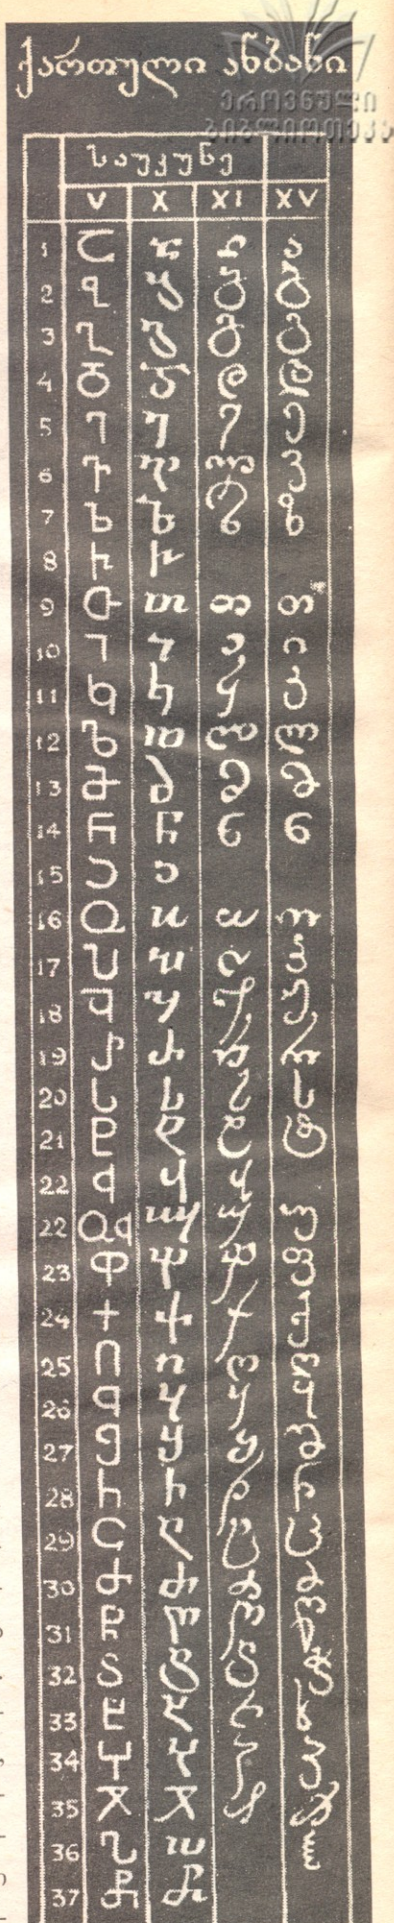 ქართული ანბანი
ეროვნული
ბიბლიოთეკა
საუკუნე
V X XI XV
1 Ⴀ ⴀ ა ა
2 Ⴁ ⴁ ბ ბ
3 Ⴂ ⴂ გ გ
4 Ⴃ ⴃ დ დ
5 Ⴄ ⴄ ე ე
6 Ⴅ ⴅ ვ ვ
7 Ⴆ ⴆ ზ ზ
8 Ⴡ ⴡ
9 Ⴇ ⴇ თ თ
10 Ⴈ ⴈ ი ი
11 Ⴉ ⴉ კ კ
12 Ⴊ ⴊ ლ ლ
13 Ⴋ ⴋ მ მ
14 Ⴌ ⴌ ნ ნ
15 Ⴢ ⴢ
16 Ⴍ ⴍ ო ო
17 Ⴎ ⴎ პ პ
18 Ⴏ ⴏ ჟ ჟ
19 Ⴐ ⴐ რ რ
20 Ⴑ ⴑ ს ს
21 Ⴒ ⴒ ტ ტ
22 Ⴣ ⴣ ჳ
22 ႭჃ ⴍⴣ უ უ
23 Ⴔ ⴔ ფ ფ
24 Ⴕ ⴕ ქ ქ
25 Ⴖ ⴖ ღ ღ
26 Ⴗ ⴗ ყ ყ
27 Ⴘ ⴘ შ შ
28 Ⴙ ⴙ ჩ ჩ
29 Ⴚ ⴚ ც ც
30 Ⴛ ⴛ ძ ძ
31 Ⴜ ⴜ წ წ
32 Ⴝ ⴝ ჭ ჭ
33 Ⴞ ⴞ ხ ხ
34 Ⴤ ⴤ ჴ ჴ
35 Ⴟ ⴟ ჯ ჯ
36 Ⴠ ⴠ ჰ
37 Ⴥ ⴥ